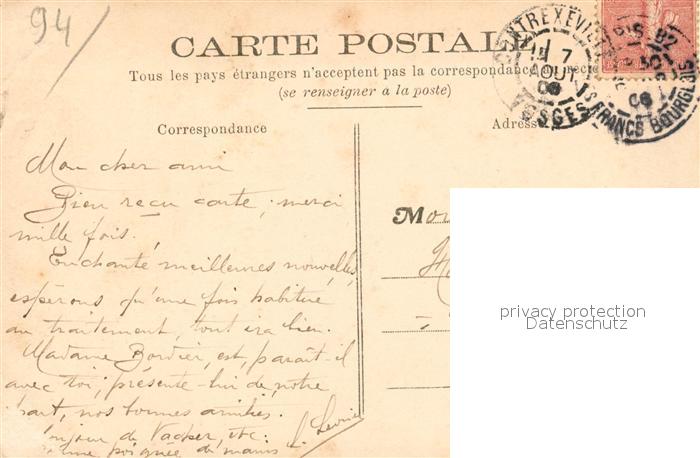 94/
CARTE POSTALE
Tous les pays étrangers n'acceptent pas la correspondance au recto
(se renseigner à la poste)
Correspondance
Adresse
CONTREXEVILLE
7
AOUT
06
VOSGES
PARIS 82
06
FRANCS BOURGEOIS
Mon cher ami
Bien reçu carte, merci
mille fois.
Enchanté meilleures nouvelles,
espérons qu'une fois habitué
au traitement, tout ira bien.
Madame Bordier, est, paraît-il
avec toi; présente-lui de notre
part, nos bonnes amitiés.
Bonjour de Vacher, etc.
une poignée de mains
Mon
privacy protection
Datenschutz